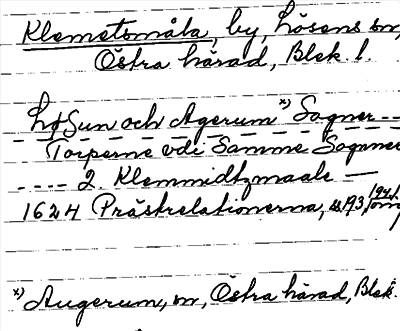 Klemetsmåla, by, Lösens sn,
Östra härad, Blek. l.
Løsun och Agerum x) Sogner ---
Torperne vdi Samme Sognner
---- 2. Klemmidtzmaale —
1624 Prästrelationerna, s. 193, 1941
x) Augerum, sn, Östra härad, Blek.